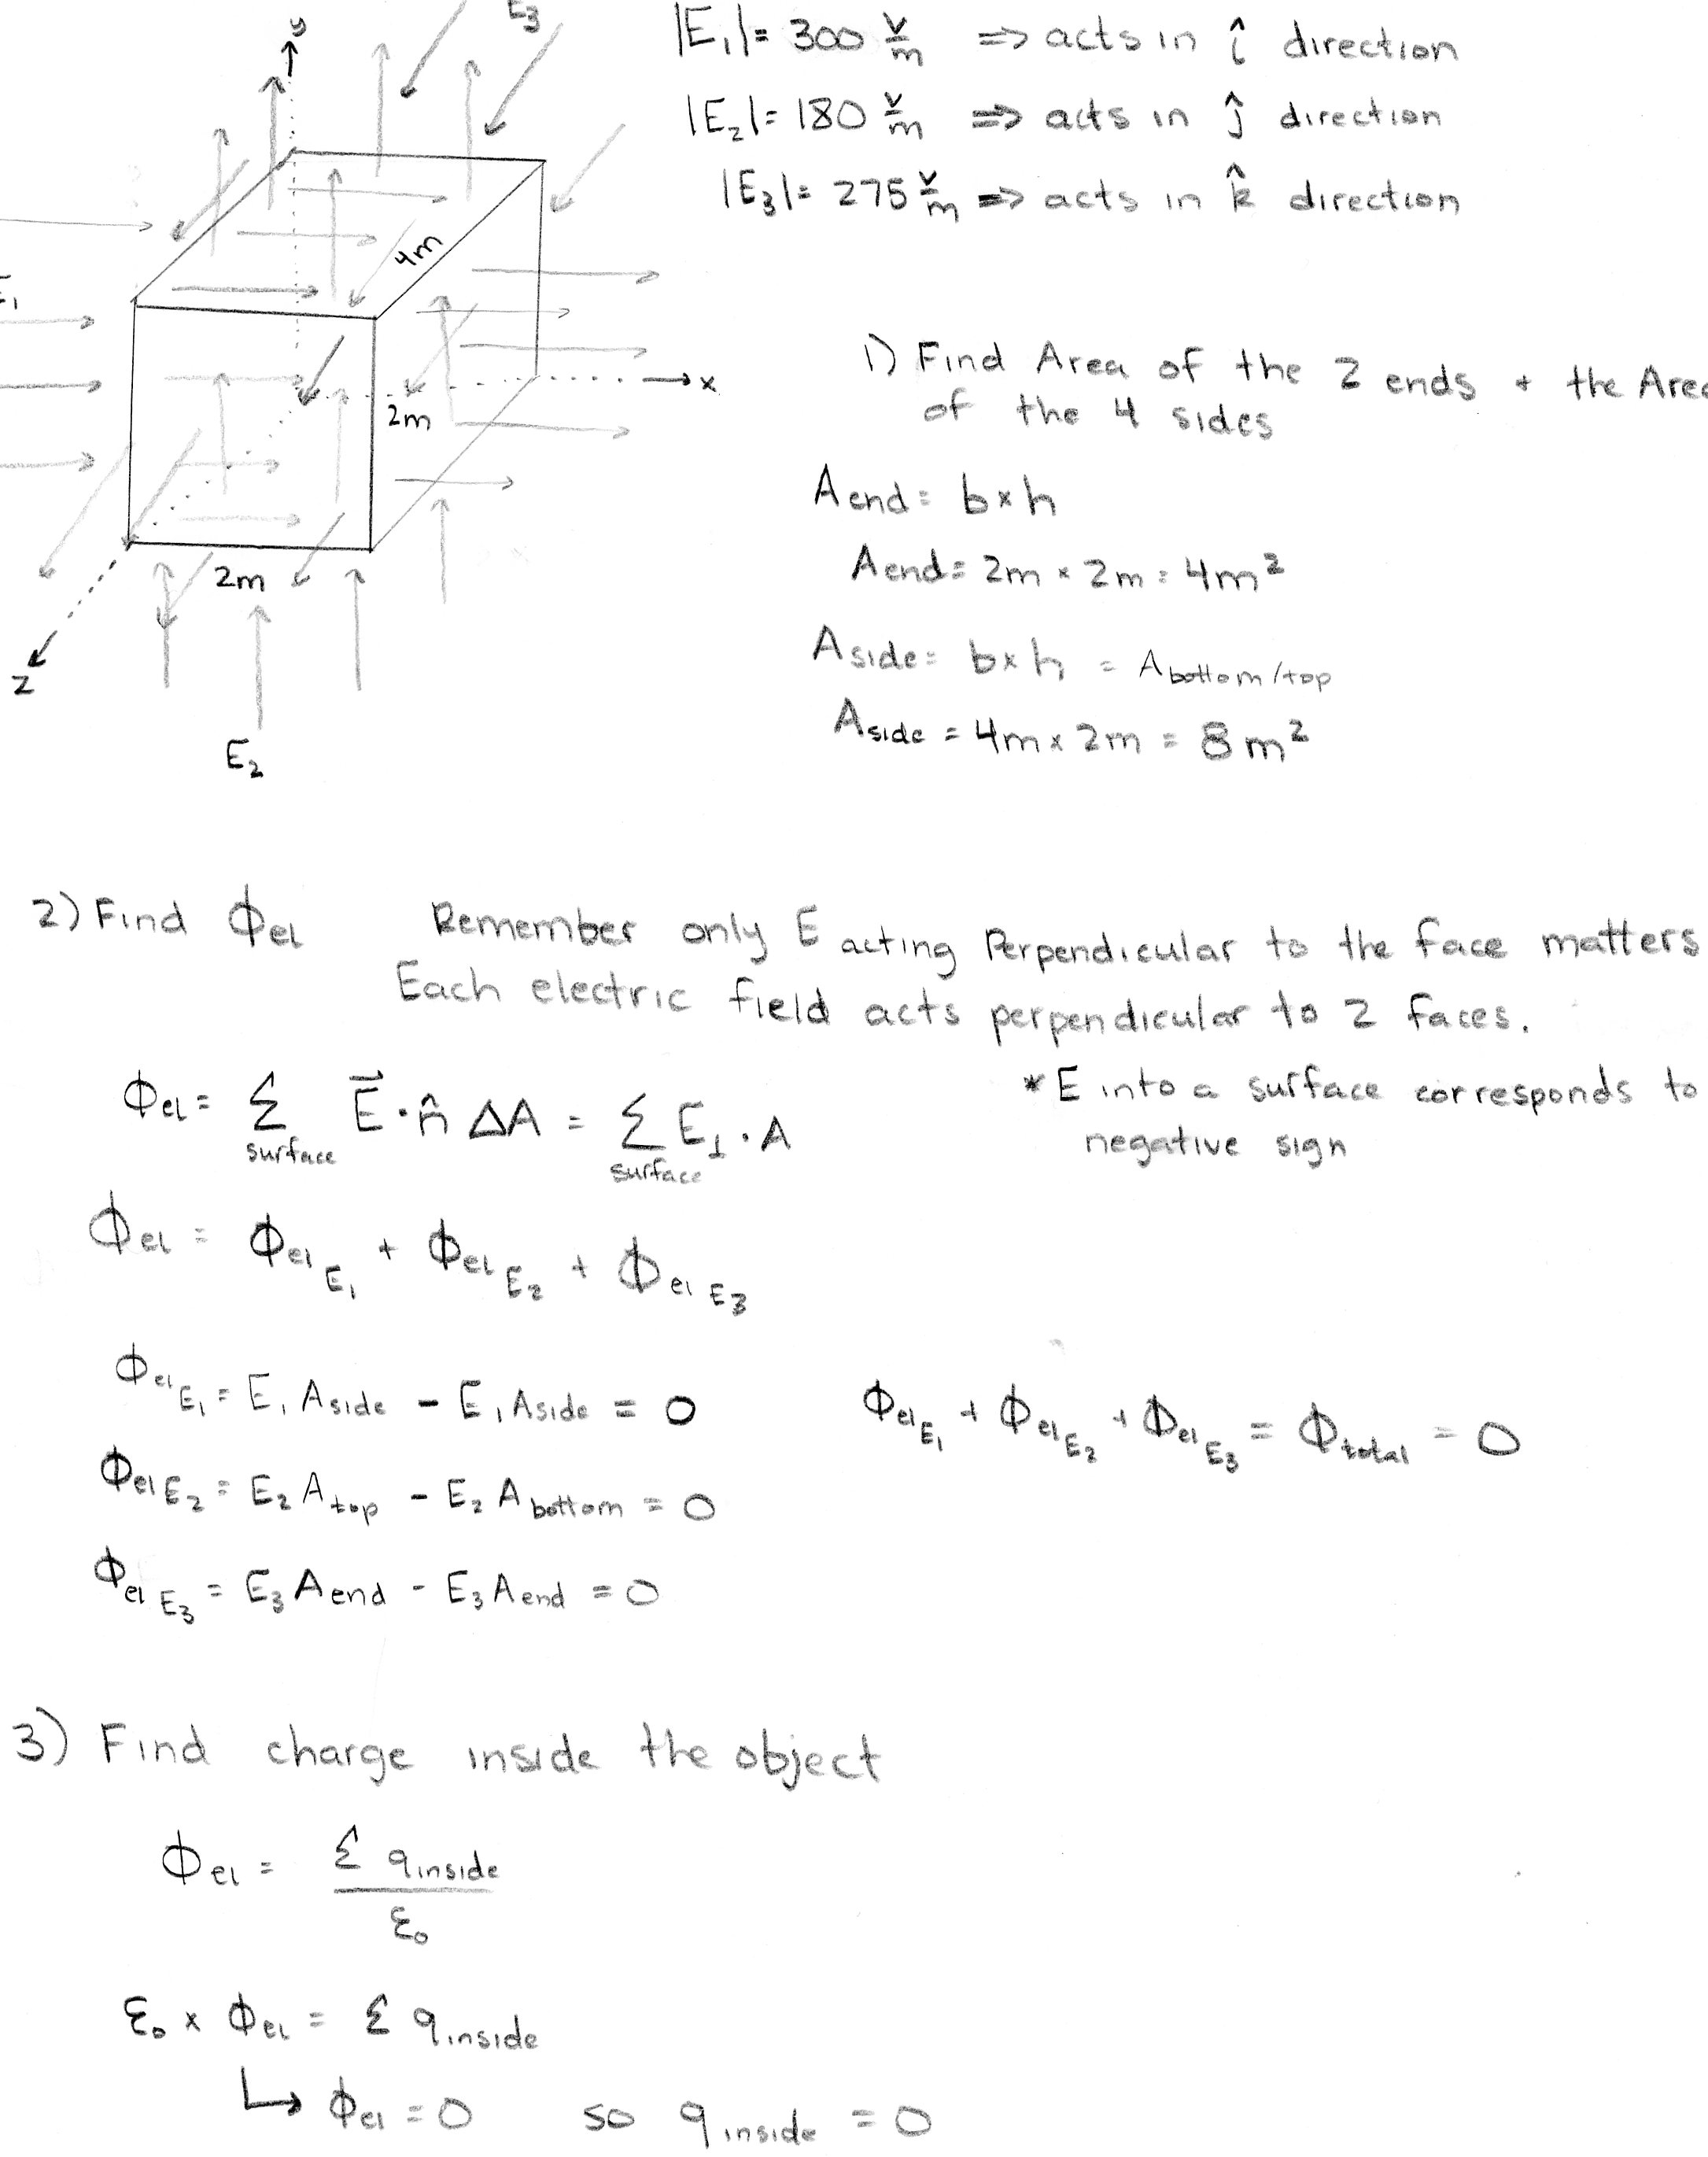 y
E₃
|E₁| = 300 V/m ⇒ acts in î direction
|E₂| = 180 V/m ⇒ acts in ĵ direction
|E₃| = 275 V/m ⇒ acts in k̂ direction
4m
E₁
x
2m
2m
z
E₂
1) Find Area of the 2 ends + the Area
of the 4 sides
A end = b × h
A end = 2m × 2m = 4m²
A side = b × h = A bottom/top
A side = 4m × 2m = 8m²
2) Find Φel Remember only E acting Perpendicular to the face matters
Each electric field acts perpendicular to 2 faces.
* E into a surface corresponds to
negative sign
Φel = Σ surface E⃗ · n̂ ΔA = Σ surface E⊥ · A
Φel = Φel E₁ + Φel E₂ + Φel E₃
Φel E₁ = E₁ A side - E₁ A side = 0
Φel E₁ + Φel E₂ + Φel E₃ = Φ total = 0
Φel E₂ = E₂ A top - E₂ A bottom = 0
Φel E₃ = E₃ A end - E₃ A end = 0
3) Find charge inside the object
Φel = Σ q inside / ε₀
ε₀ × Φel = Σ q inside
↳ Φel = 0 so q inside = 0